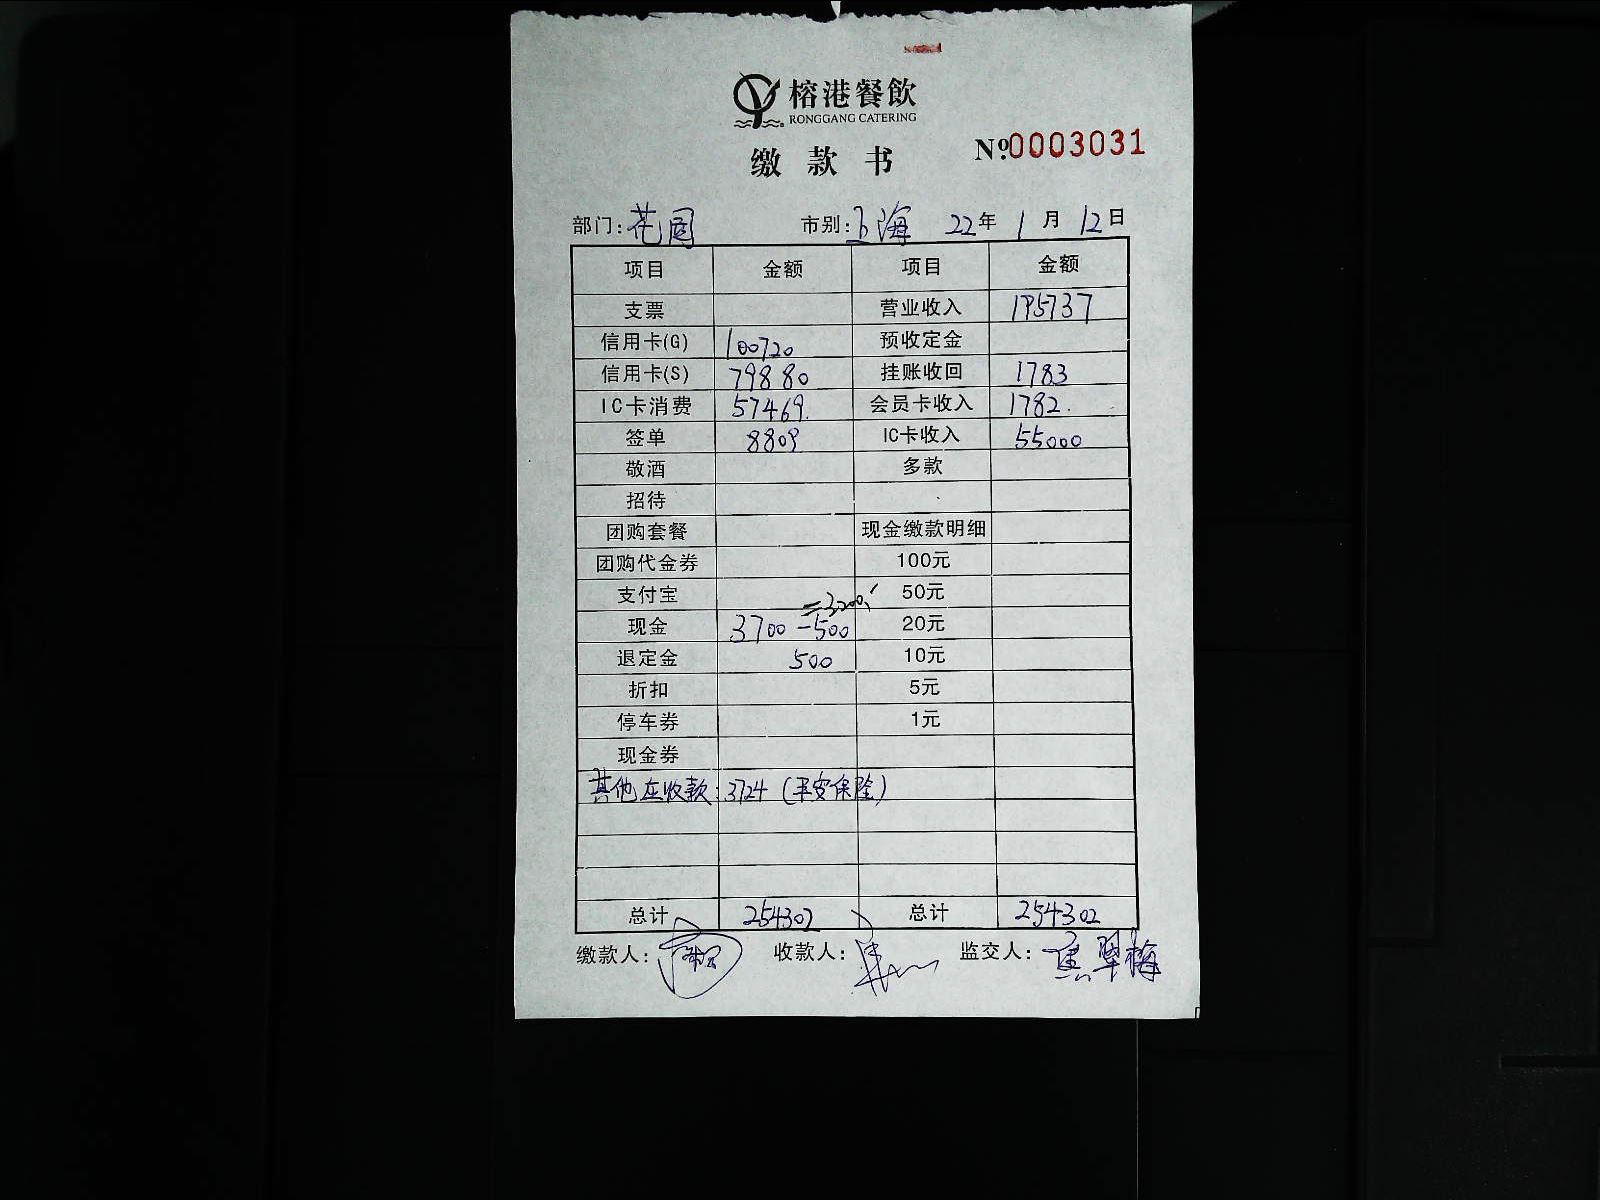 榕港餐飲
RONGGANG CATERING
缴款书 №0003031
部门: 花园 市别: 上海 22年 1月 12日
项目 金额 项目 金额
支票 营业收入 195737
信用卡(G) 100720 预收定金
信用卡(S) 79880 挂账收回 1783
IC卡消费 57469. 会员卡收入 1782.
签单 8809 IC卡收入 55000
敬酒 多款
招待
团购套餐 现金缴款明细
团购代金券 100元
支付宝 50元
现金 3700-500=3200 20元
退定金 500 10元
折扣 5元
停车券 1元
现金券
其他应收款: 3724 (平安保险)
总计 254302 总计 254302
缴款人: 收款人: 监交人: 焦翠梅